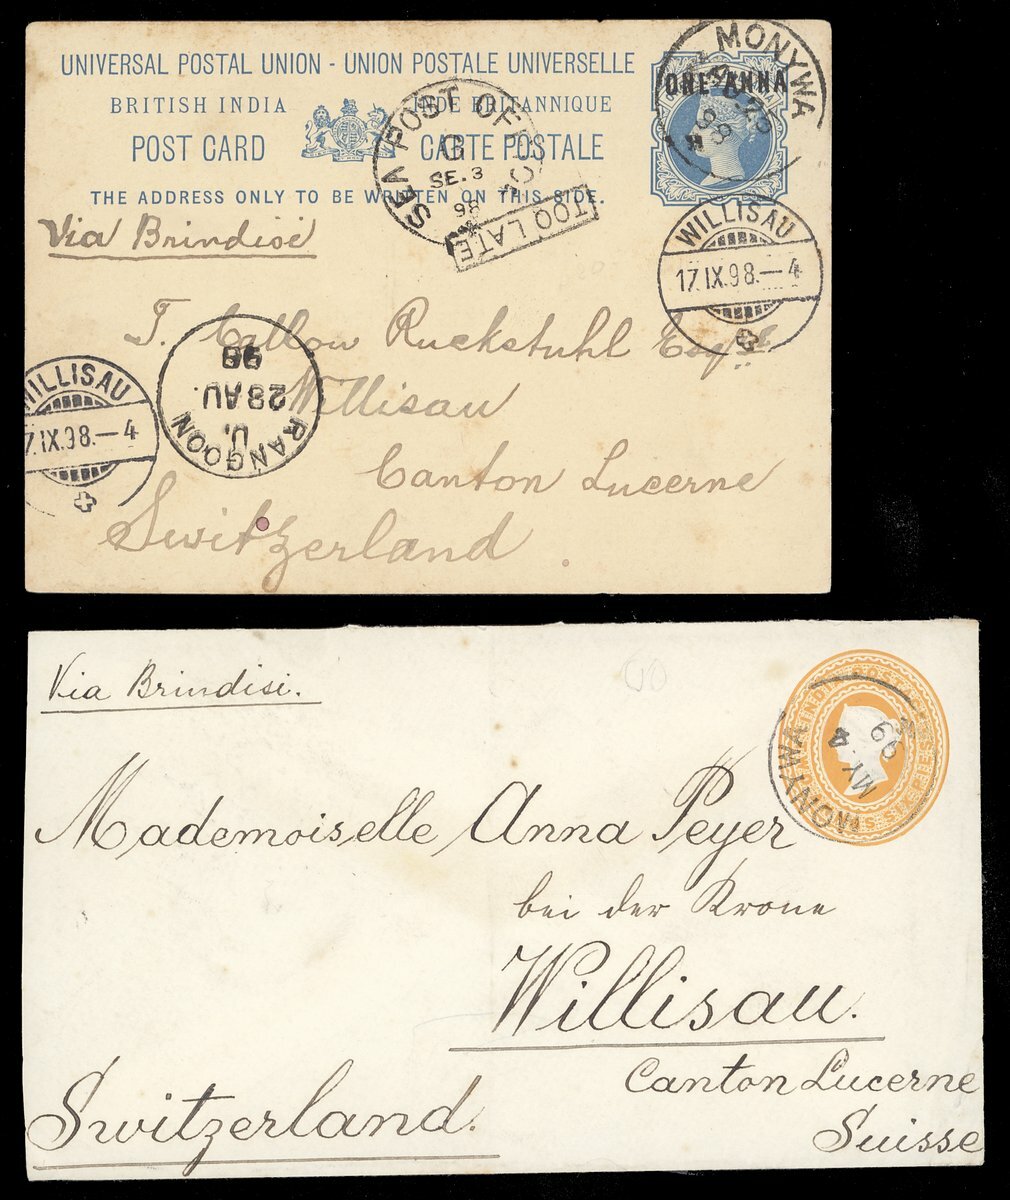 UNIVERSAL POSTAL UNION - UNION POSTALE UNIVERSELLE
BRITISH INDIA INDE BRITANNIQUE
POST CARD CARTE POSTALE
THE ADDRESS ONLY TO BE WRITTEN ON THIS SIDE.
ONE ANNA
MONYWA
SEA POST OFFICE
G
SE. 3
98
TOO LATE
Via Brindisi
WILLISAU
17.IX.98.–4
T. Ruckstuhl Esq
Willisau
Canton Lucerne
Switzerland.
RANGOON
U.
28 AU.
98
WILLISAU
7.IX.98.–4
Via Brindisi.
MONYWA
MY. 4
99
Mademoiselle Anna Peyer
bei der Krone
Willisau.
Canton Lucerne
Switzerland.
Suisse